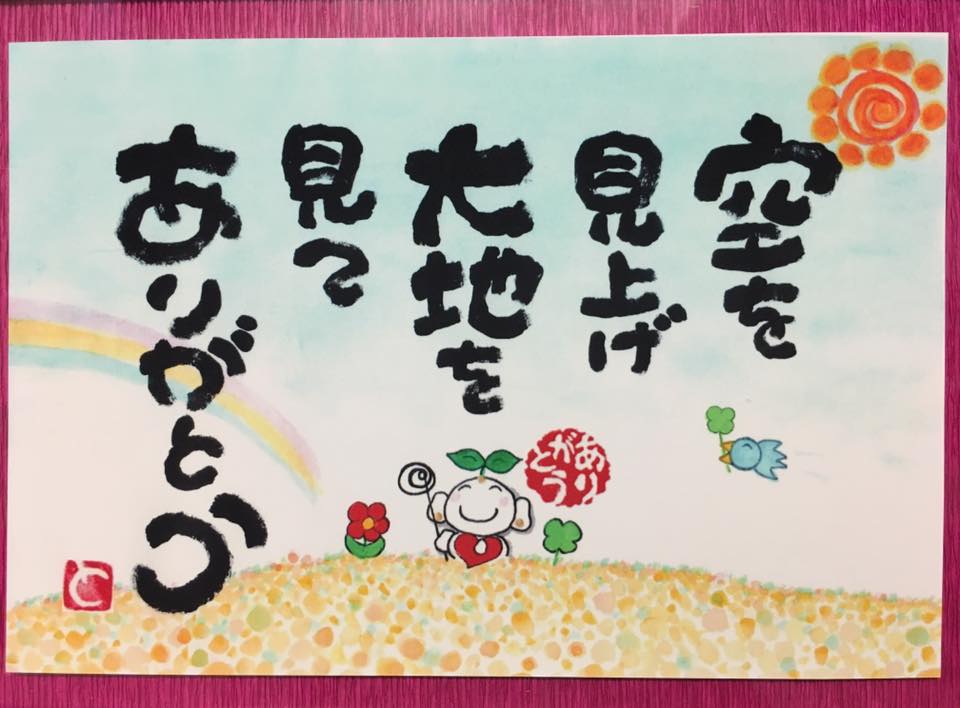 空を
見上げ
大地を
見て
ありがとう
ありがとう
と